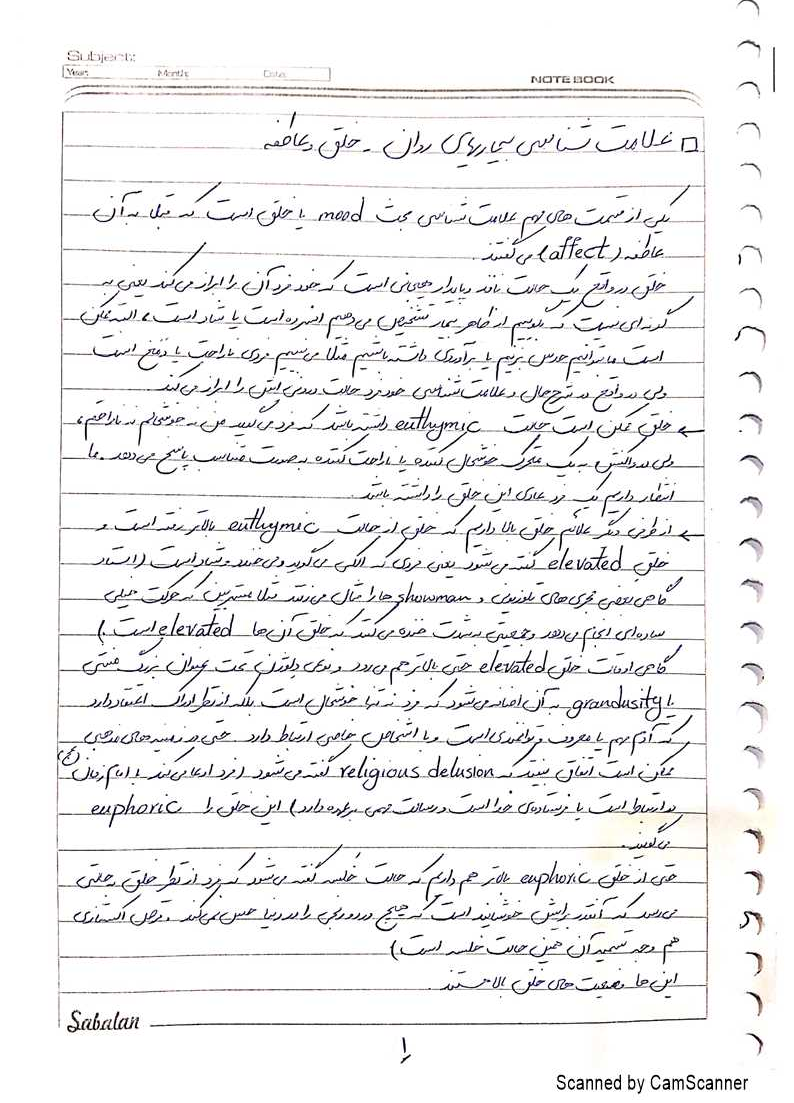 Subject:
Year: Month: Date:
NOTE BOOK
□ علامت شناسی بیماریهای روان - خلق و عاطفه
یکی از قسمت های مهم علامت شناسی بحث mood یا خلق است که قبلا به آن
عاطفه (affect) می گفتند.
خلق در واقع یک حالت نافذ و پایدار هیجانی است که خود فرد آن را ابراز می کند یعنی به
گونه ای نیست که بگوییم از ظاهر بیمار تشخیص می دهیم افسرده است یا شاد است، البته ممکن
است ما بتوانیم حدس بزنیم یا برآوردی داشته باشیم مثلا می بینیم فردی ناراحت یا دمغ است
ولی در واقع در شرح حال و علامت شناسی خود فرد حالت درونی اش را ابراز می کند.
← خلق ممکن است حالت euthymic داشته باشد که فرد می گوید من نه خوشحالم نه ناراحتم،
ولی در واکنش به یک محرک خوشحال کننده یا ناراحت کننده به صورت متناسب پاسخ می دهد. ما
انتظار داریم یک فرد عادی این خلق را داشته باشد.
← از طرفی دیگر علائم خلق بالا داریم که خلق از حالت euthymic بالاتر رفته است و
خلق elevated گفته می شود یعنی فردی که الکی می گوید و می خندد و شاد است (استاد
گاهی بعضی مجری های تلویزیونی و showman ها را مثال می زنند مثلا مستربین که حرکت خیلی
ساده ای انجام می دهد و جمعیتی به شدت خنده می کنند که خلق آن ها elevated است.)
گاهی اوقات خلق elevated حتی بالاتر هم می رود و نوعی دلوژن تحت عنوان بزرگ منشی
یا grandusity به آن اضافه می شود که فرد نه تنها خوشحال است بلکه از نظر ادراک اعتقاد دارد
که آدم مهم یا معروف و توانمندی است و با اشخاص خاصی ارتباط دارد. حتی در زمینه های مذهبی
ممکن است اتفاق بیفتد که religious delusion گفته می شود (فرد ادعا می کند با امام زمان (عج)
در ارتباط است یا فرستاده ی خدا است و رسالت مهمی بر عهده دارد) این خلق را euphoric
می گویند.
حتی از خلق euphoric بالاتر هم داریم که حالت خُلسه گفته می شود که فرد از نظر خلق به حدی
می رسد که آنقدر برایش خوشایند است که هیچ درد و رنجی را در دنیا حس نمی کند. قرص اکستازی
هم وجه تسمیه آن همین حالت خلسه است)
این ها وضعیت های خلق بالا هستند.
Sabalan
۱
Scanned by CamScanner